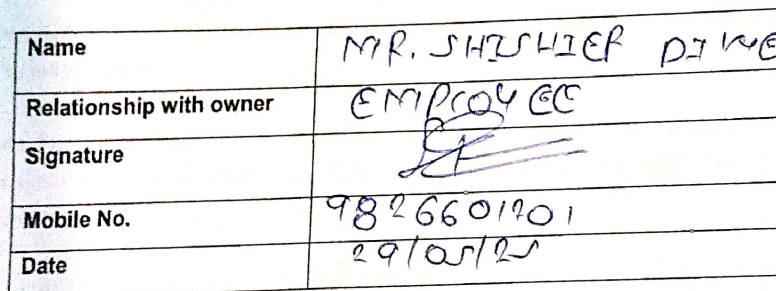 Name MR. SHISHIER
Relationship with owner EMPLOYEE
Signature
Mobile No. 9826601201
Date 29/05/25